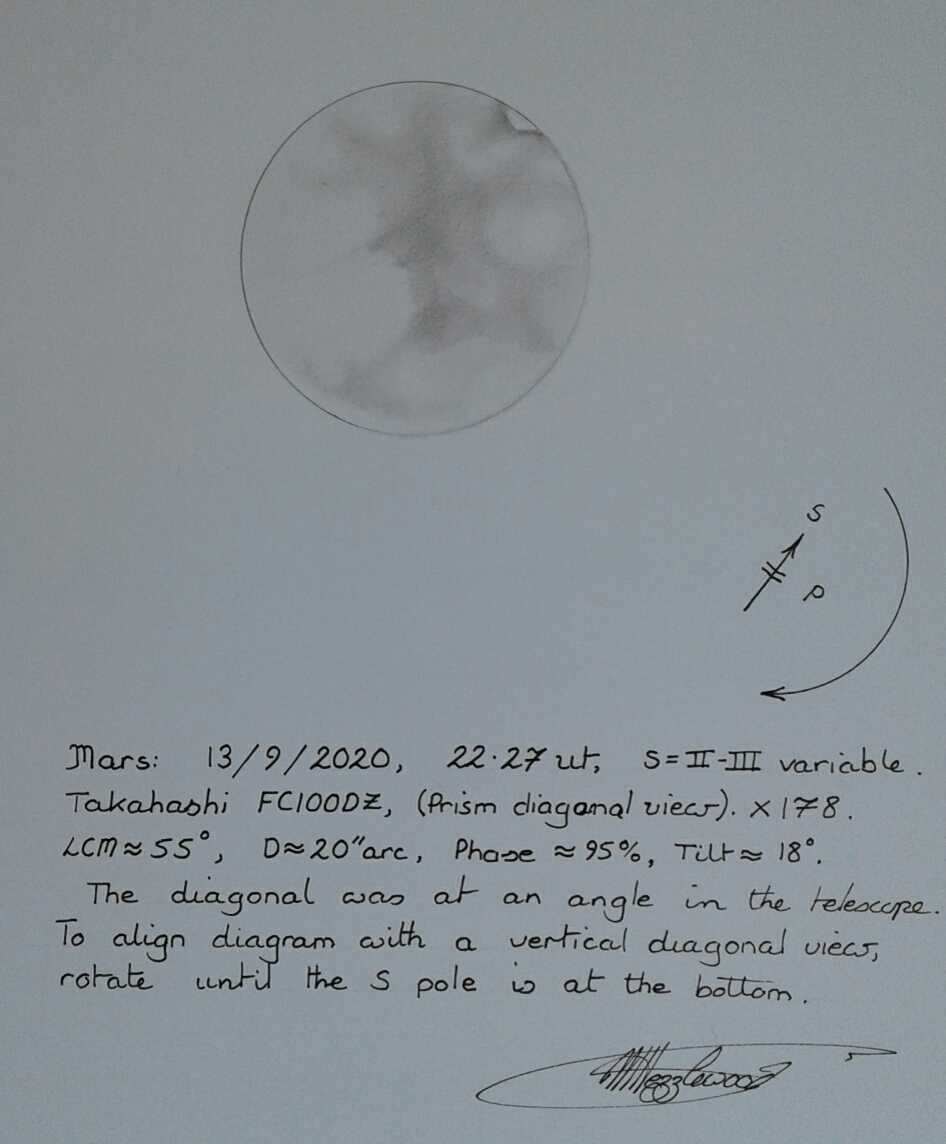 S
p
Mars: 13/9/2020, 22·27 ut, S=II-III variable.
Takahashi FC100DZ, (Prism diagonal view). ×178.
LCM≈55°, D≈20"arc, Phase ≈95%, Tilt≈ 18°.
The diagonal was at an angle in the telescope.
To align diagram with a vertical diagonal view,
rotate until the S pole is at the bottom.